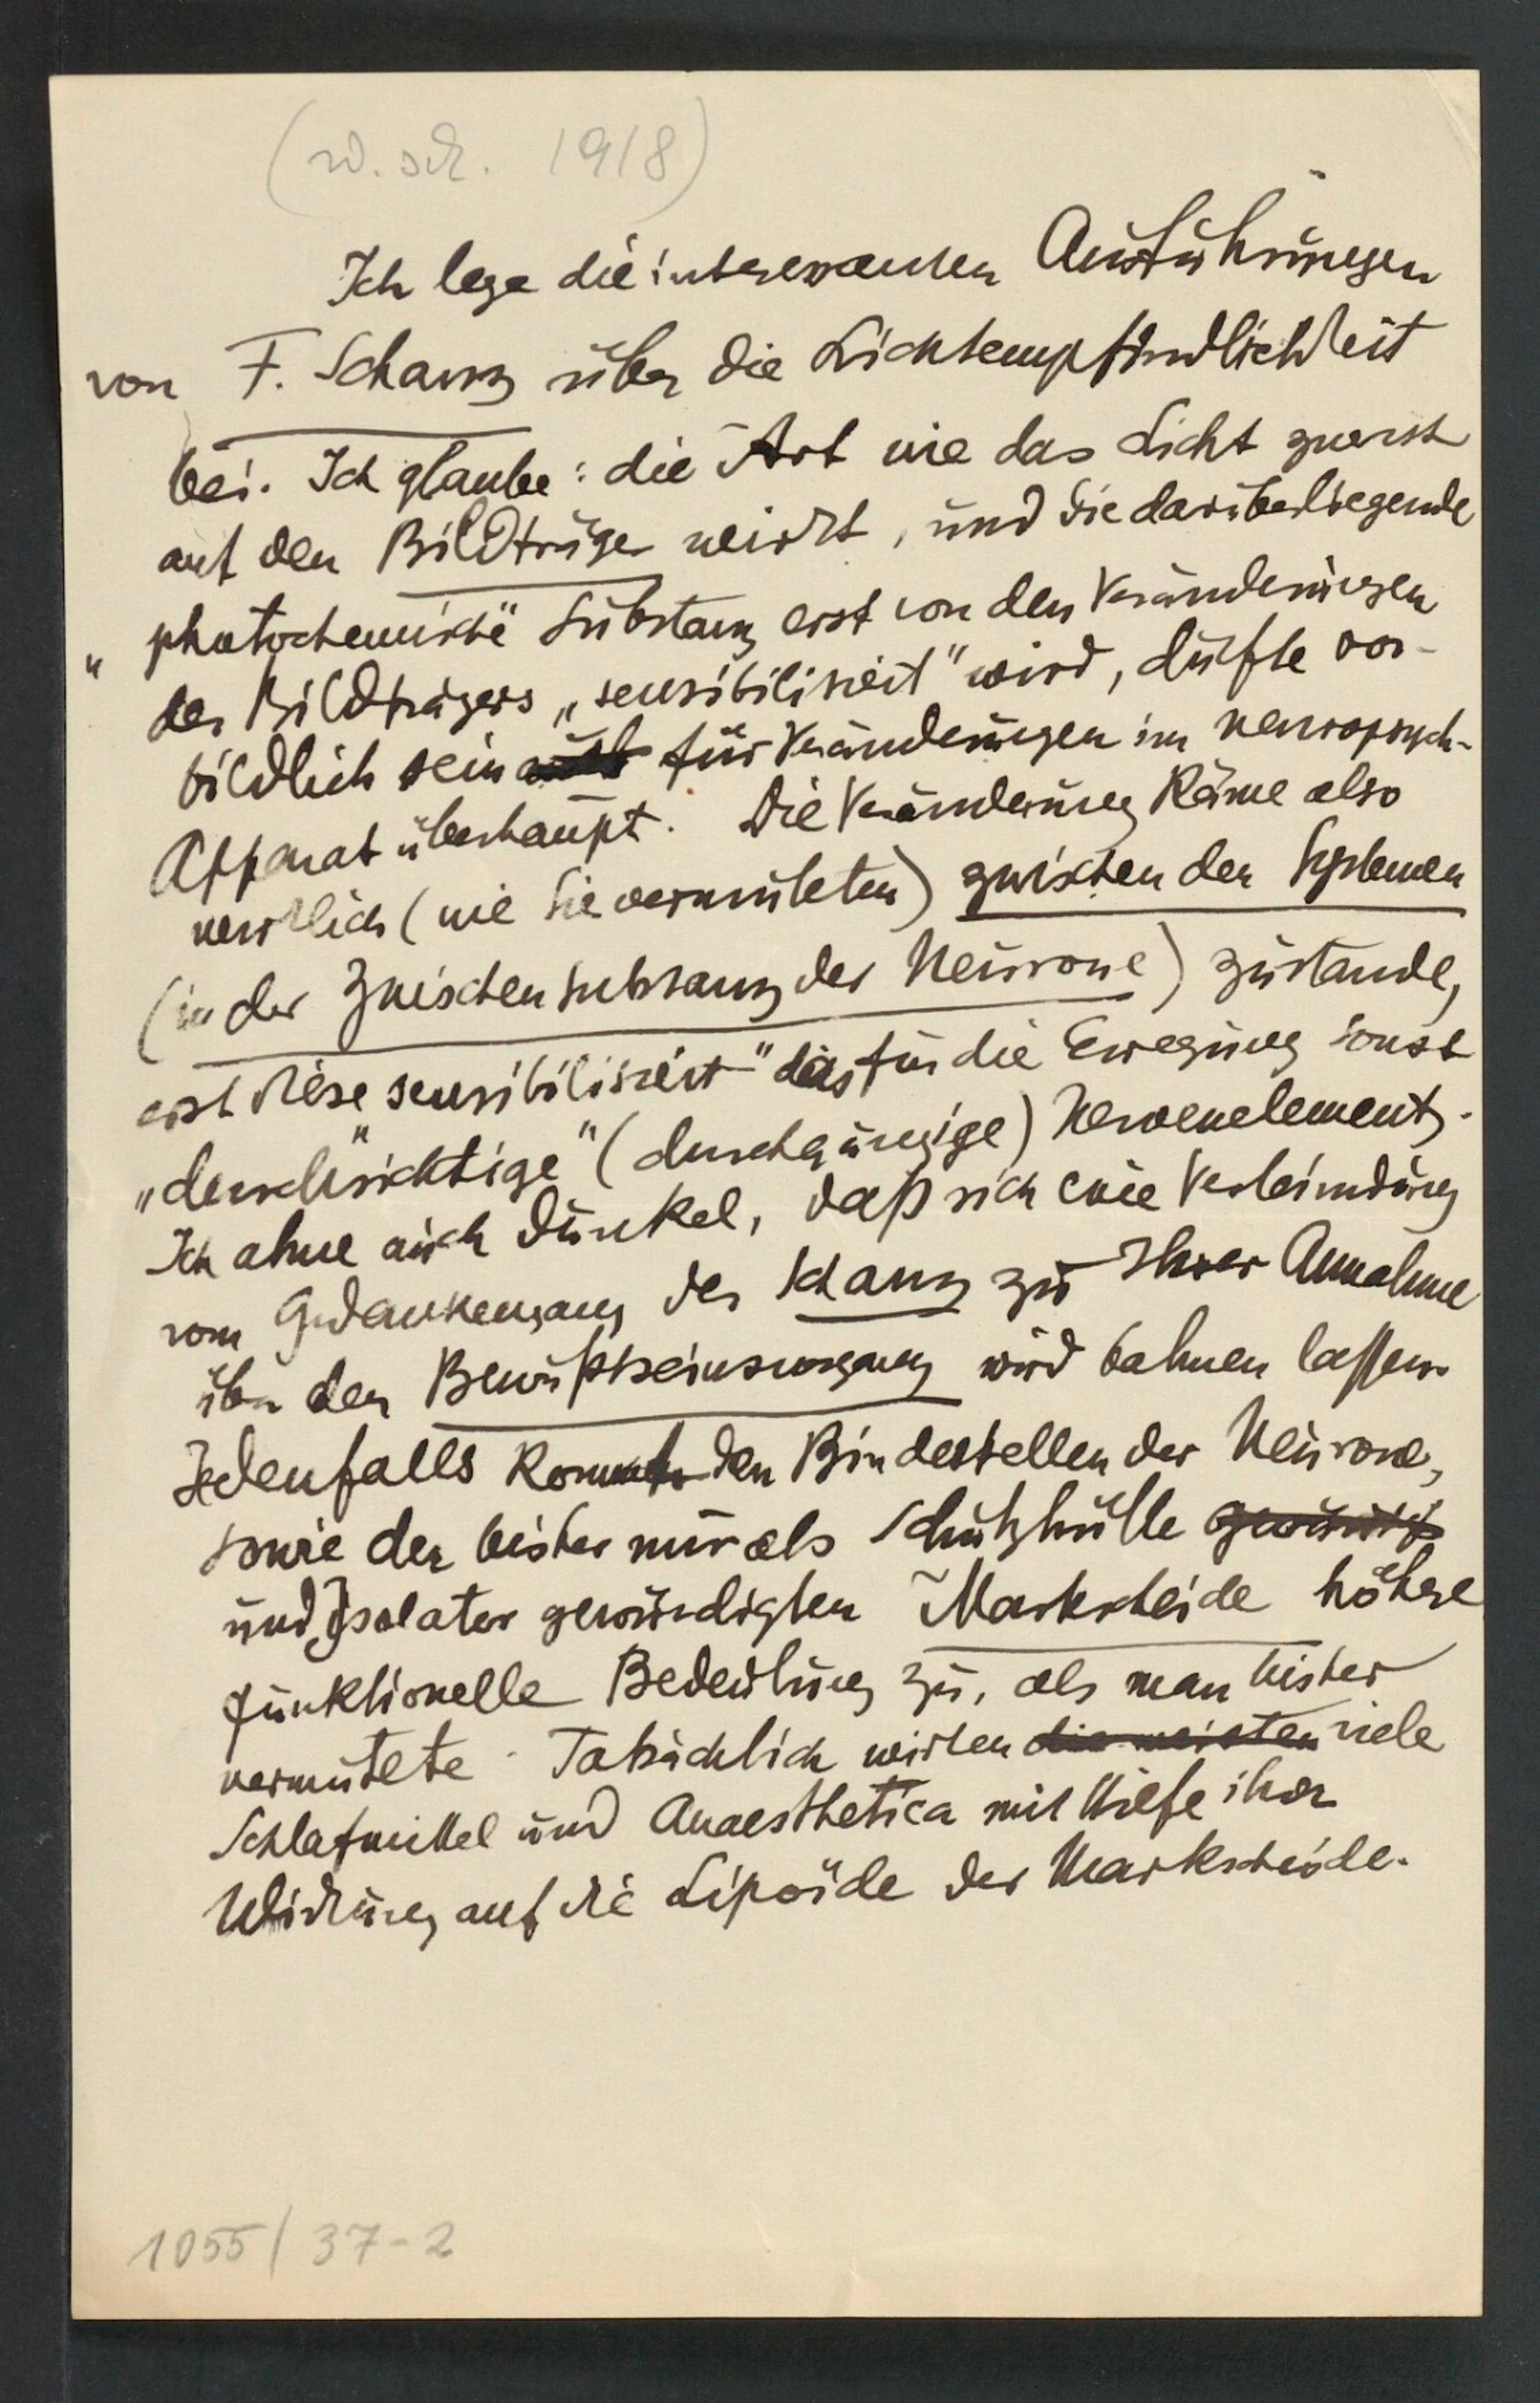 (w. sch. 1918)
Ich lege die interessanten Ausführungen
von F. Schanz über die Lichtempfindlichkeit
bei. Ich glaube: die Art wie das Licht zuerst
auf den Bildträger wirkt, und die darüberliegende
„photochemische" Substanz erst von den Veränderungen
des Bildträgers „sensibilisiert" wird, dürfte vor-
bildlich sein auch für Veränderungen im neuropsych.
Apparat überhaupt. Die Veränderung käme also
wirklich (wie Sie vermuteten) zwischen den Systemen
(in der Zwischensubstanz der Neurone) zustande,
erst diese „sensibilisiert" das für die Erregung sonst
„durchsichtige" (durchgängige) Nervenelement.
Ich ahne auch dunkel, daß sich eine Verbindung
vom Gedankengang des Schanz zu Ihrer Annahme
über den Bewußtseinsvorgang wird bahnen lassen.
Jedenfalls kommt den Bindestellen der Neurone,
sowie der bisher nur als Schutzhülle
und Isolator gewürdigten Markscheide höhere
funktionelle Bedeutung zu, als man bisher
vermutete. Tatsächlich wirken die meisten viele
Schlafmittel und Anaesthetica mit Hilfe ihrer
Wirkung auf die Lipoide der Markscheide.
1055/37-2